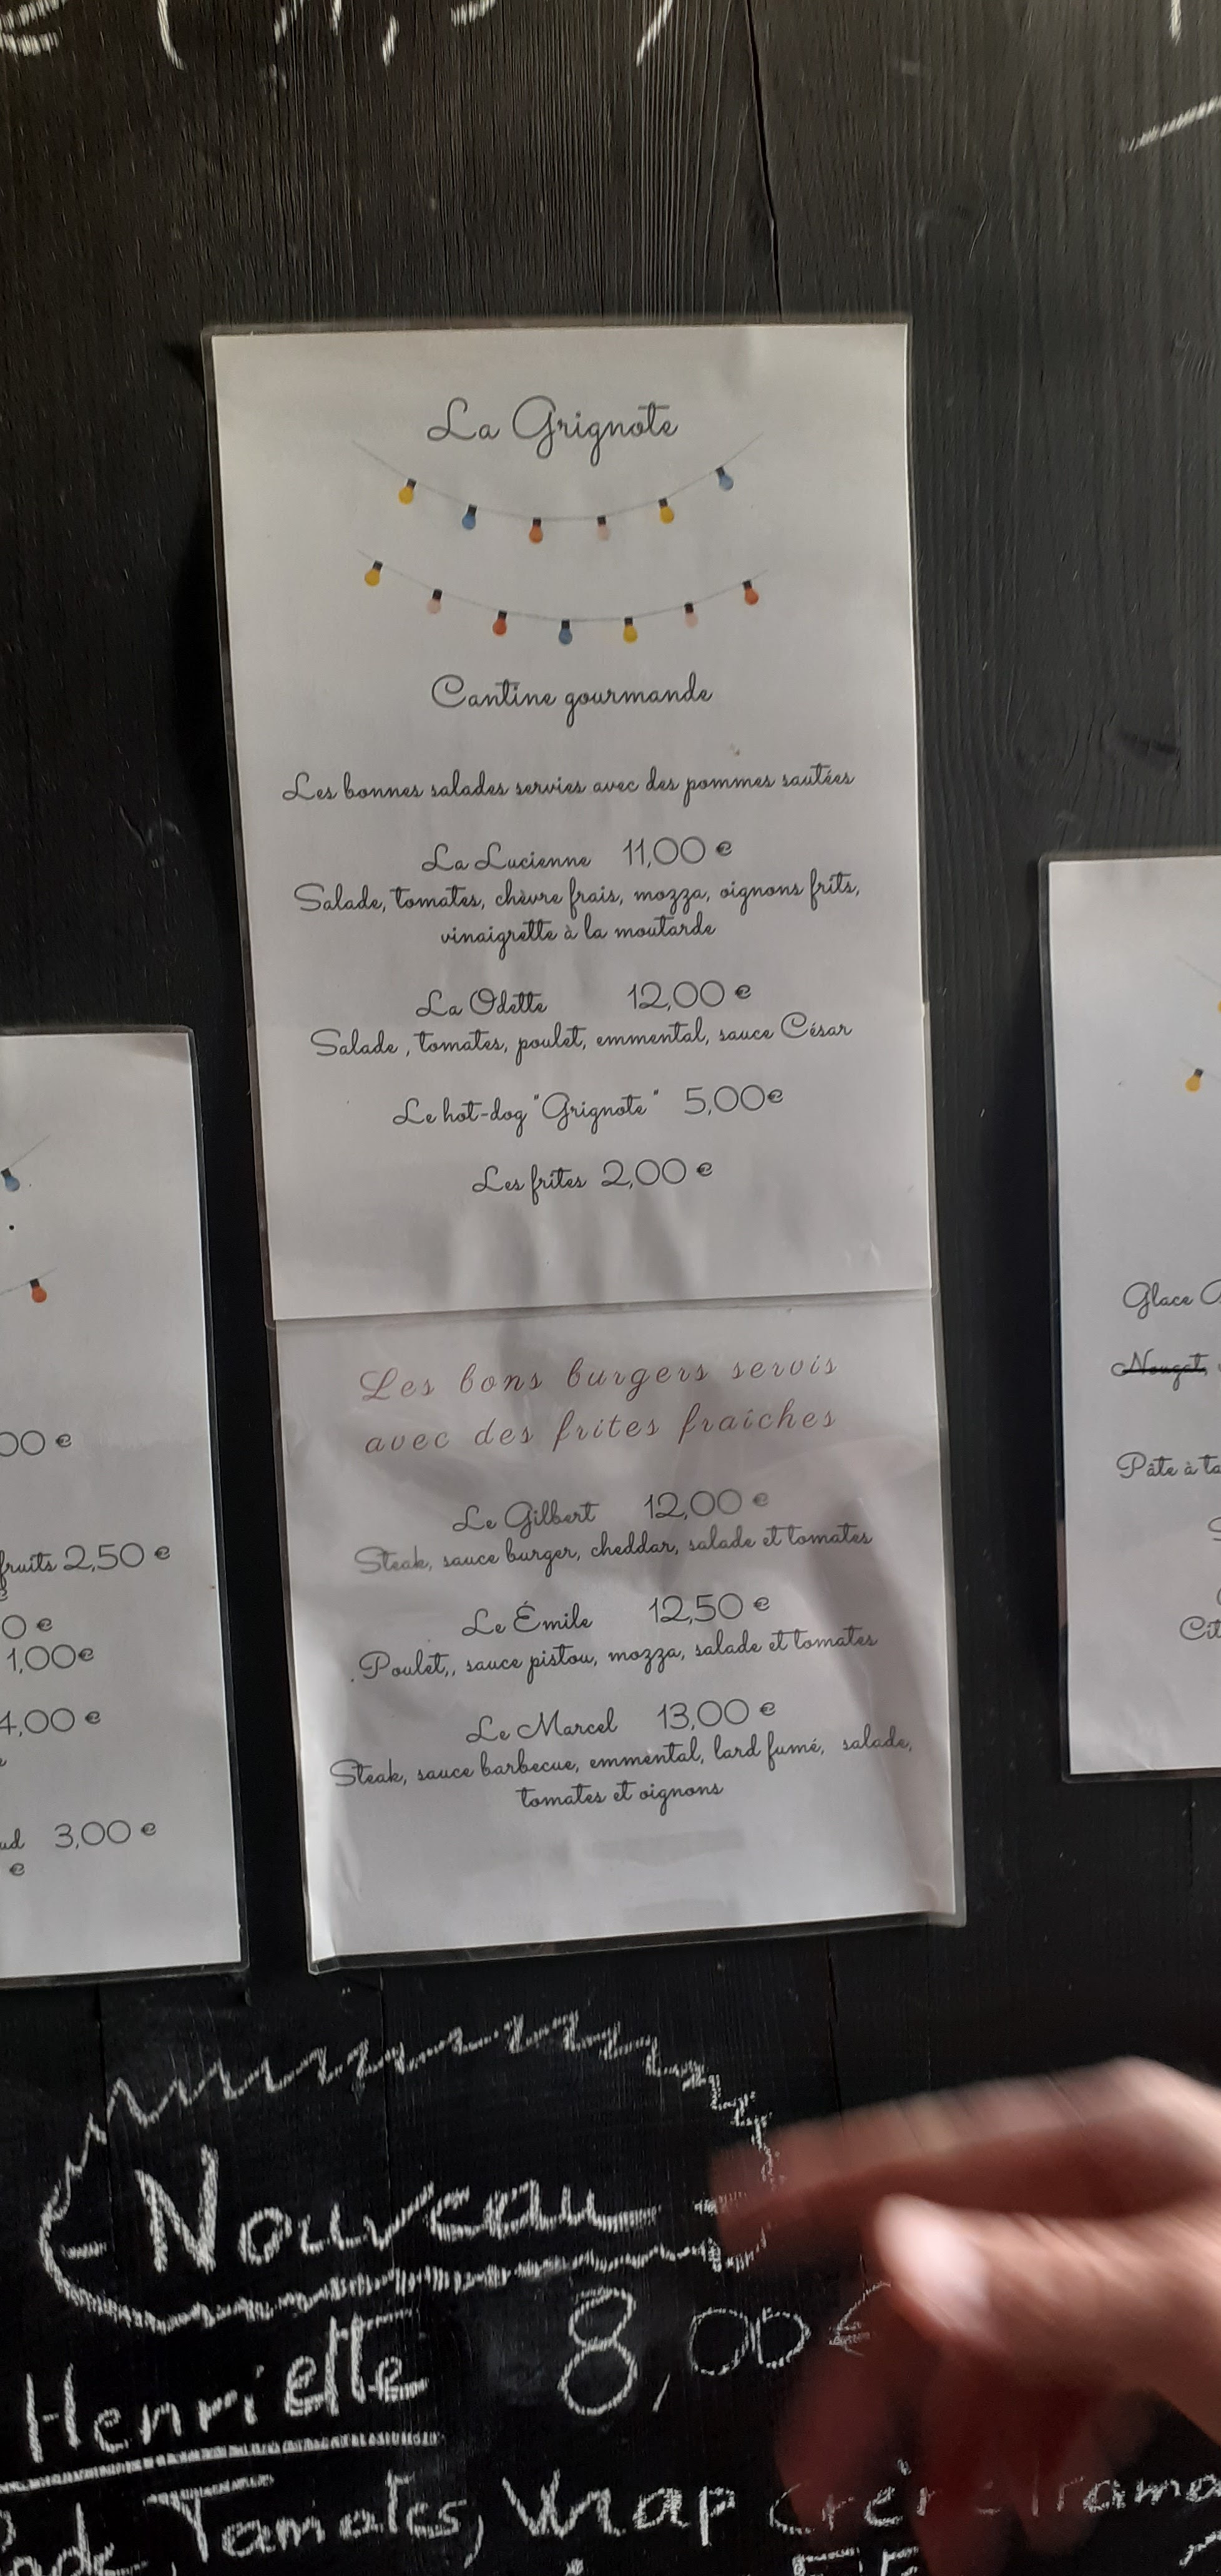 La Grignote
Cantine gourmande
Les bonnes salades servies avec des pommes sautées
La Lucienne 11,00 €
Salade, tomates, chèvre frais, mozza, oignons frits,
vinaigrette à la moutarde
La Odette 12,00 €
Salade , tomates, poulet, emmental, sauce César
Le hot-dog "Grignote" 5,00€
Les frites 2,00 €
Les bons burgers servis
avec des frites fraîches
Le Gilbert 12,00 €
Steak, sauce burger, cheddar, salade et tomates
Le Émile 12,50 €
.Poulet,, sauce pistou, mozza, salade et tomates
Le Marcel 13,00 €
Steak, sauce barbecue, emmental, lard fumé, salade,
tomates et oignons
00 €
fruits 2,50 €
0 €
1,00€
4,00 €
3,00 €
€
Glace
Nougat,
Pâte à
Nouveau
Henriette 8,00€
Tomates, Wrap